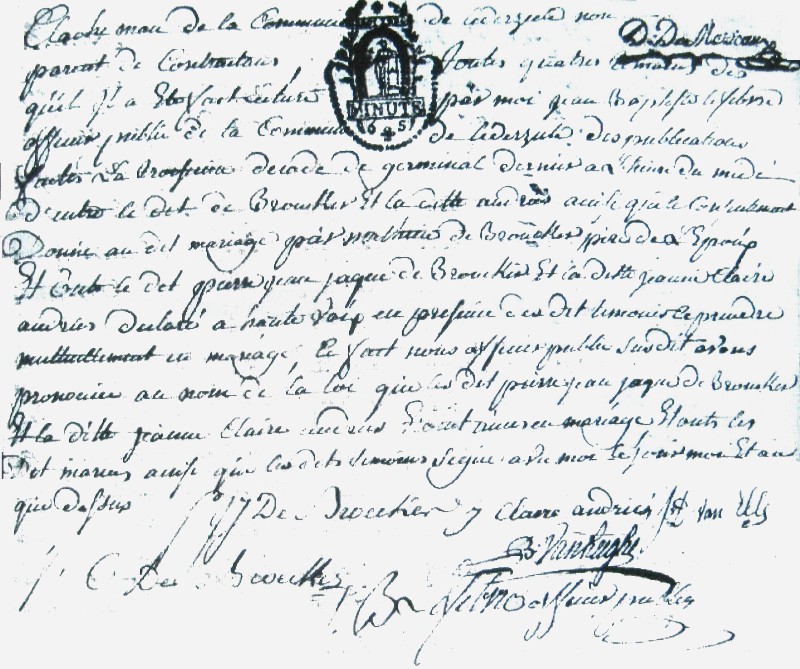 man de la Commune de Lederzeele non
D: De Mersseman
parent de Contractans toutes quatres temoins des
quil Il a Eté fait lecture par moi jean Baptiste lefebvre
MINUTE
officier public de la Commune de Lederzeele des publications
faites La troisieme decade de germinal dernier a l'heure du midi
d'entre le dit de Broucker Et la ditte andries ainsi que le Consentement
Donné au dit mariage par de Brouckere pere de l'Epoux
Et Ensuite le dit pierre jean jaque de Brouckere Et la ditte jeanne Claire
andries declaré a haute voix en presence des dit temoins se prendre
mutuellement en mariage, le fait nous officier public susdit avons
prononcé au nom de la loi que les dit pierre jean jaque de Brouckere
Et la ditte jeanne Claire andries sont unis en mariage Et ont les
Dit mariés ainsi que les dits temoins signé avec moi le jour mois Et an
que dessus P J J De Brouckere J Claire andries van
C De Brouckere
officier public